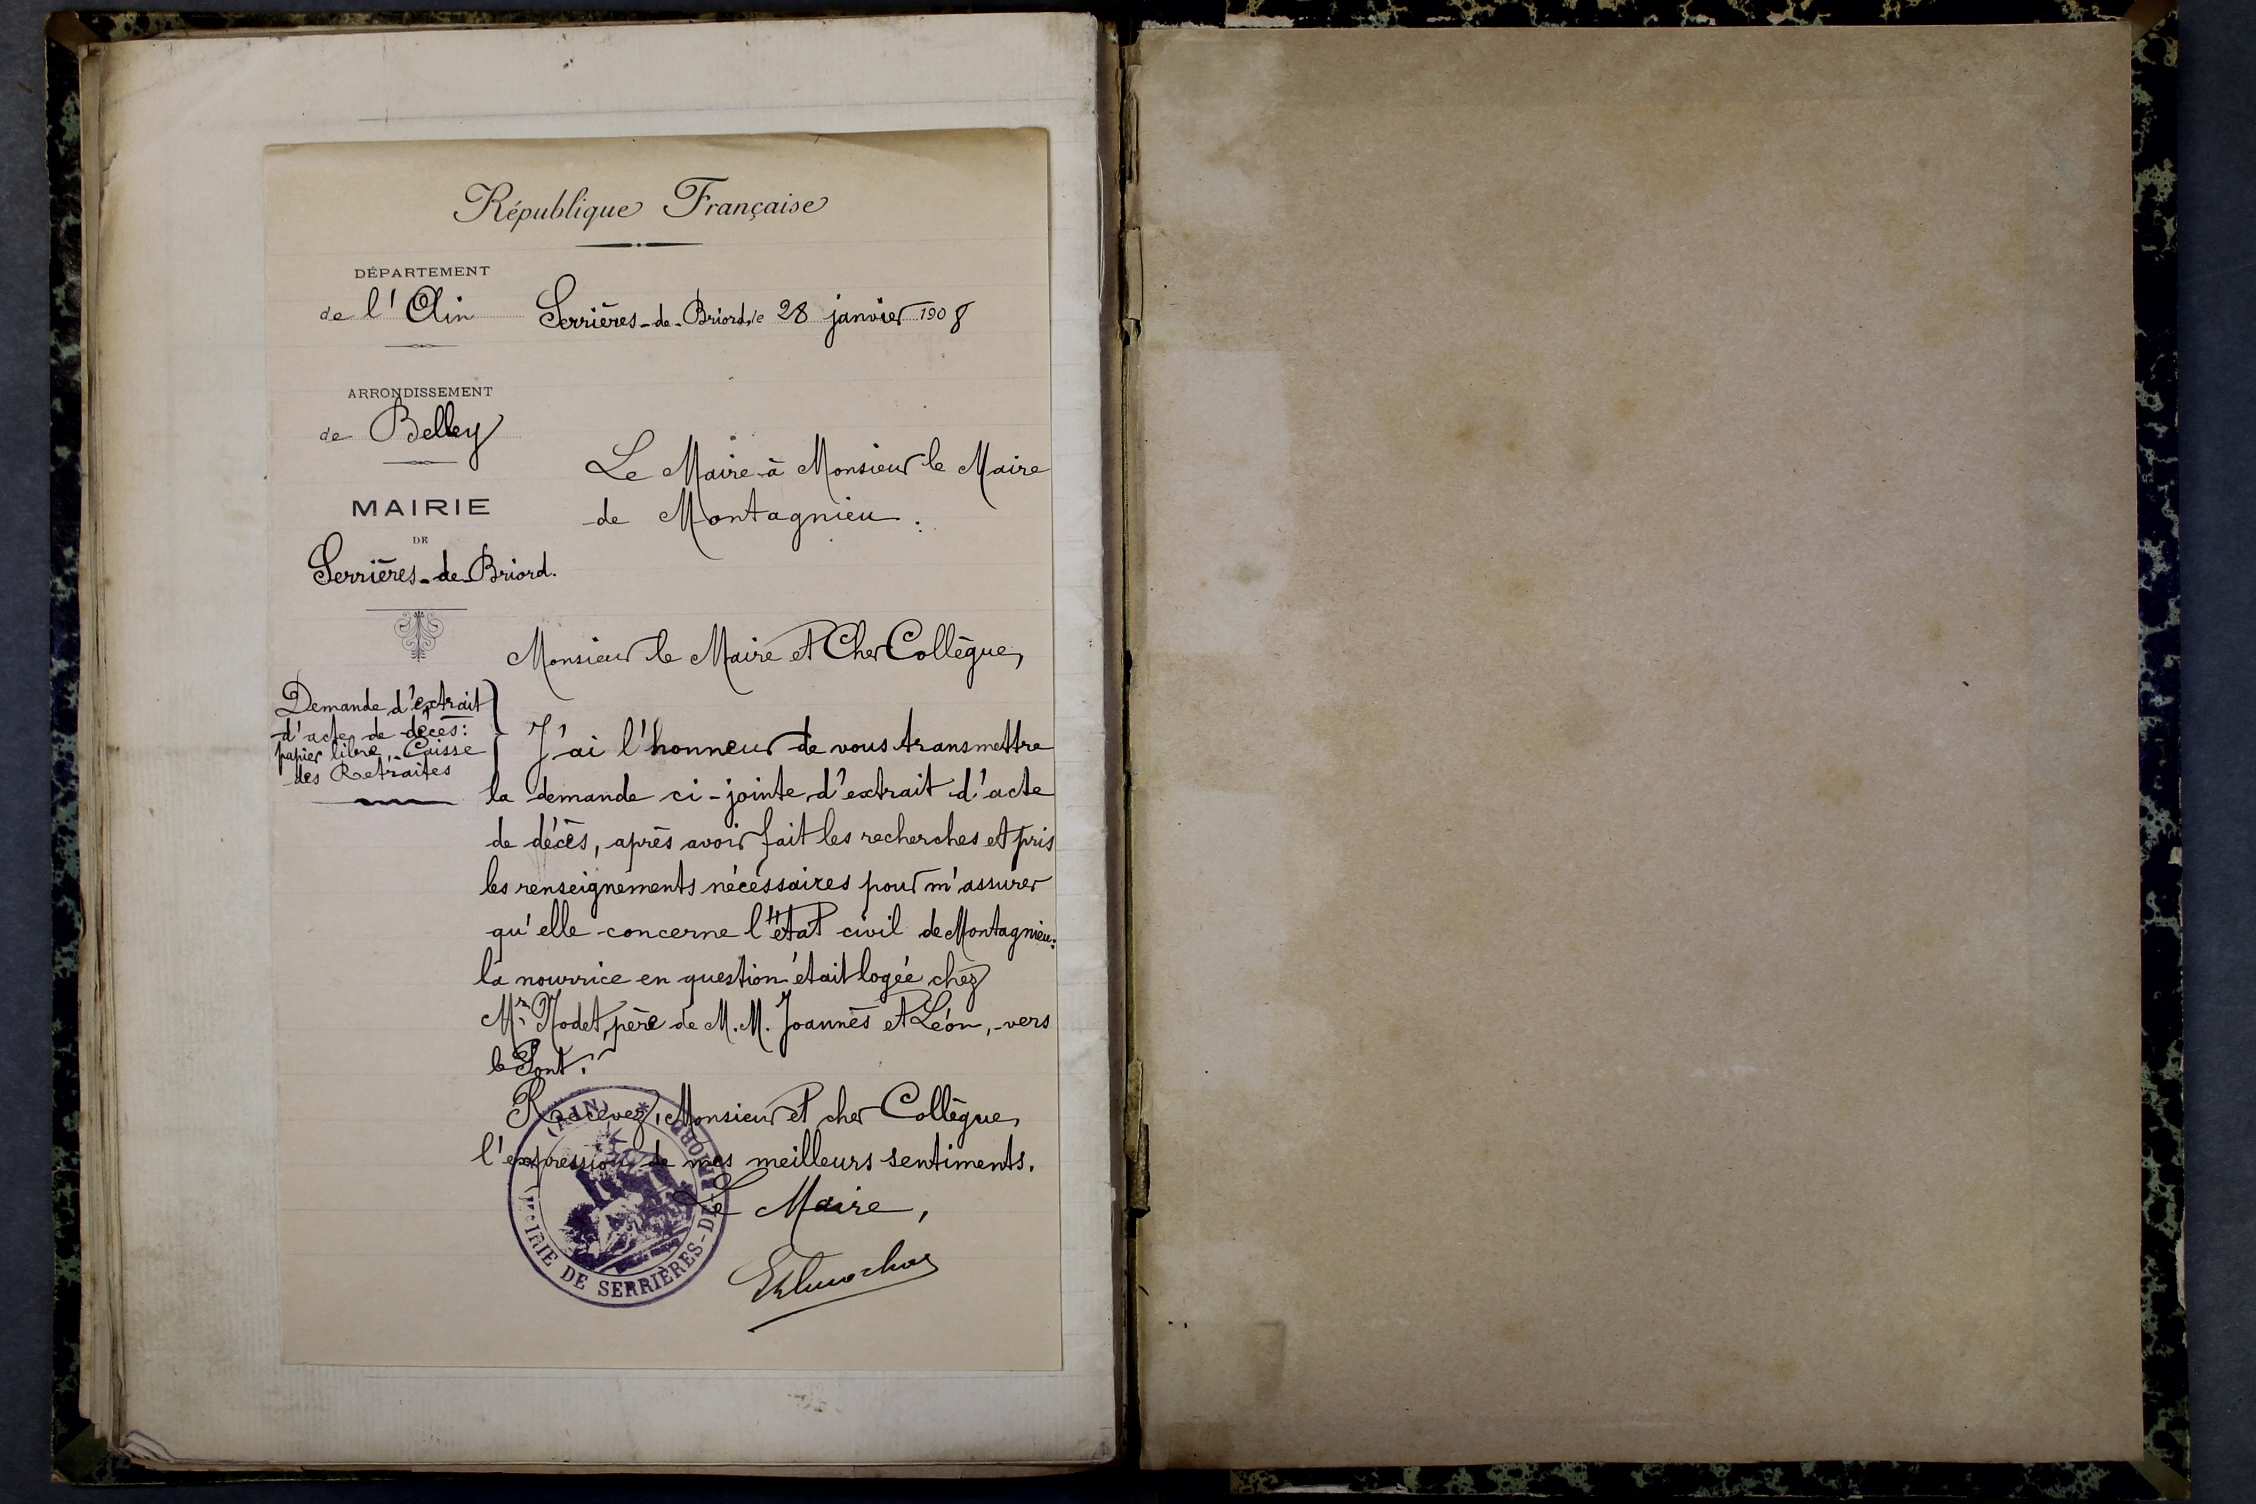 République Française
DÉPARTEMENT
de l'Ain
Serrières-de-Briord, le 28 janvier 1908
ARRONDISSEMENT
de Belley
Le Maire à Monsieur le Maire
de Montagnieu :
MAIRIE
DE
Serrières-de-Briord.
Monsieur le Maire et Cher Collègue,
Demande d'extrait
d'acte de décès :
papier libre, - Caisse
des Retraites
J'ai l'honneur de vous transmettre
la demande ci-jointe d'extrait d'acte
de décès, après avoir fait les recherches et pris
les renseignements nécessaires pour m'assurer
qu'elle concerne l'état civil de Montagnieu :
la nourrice en question était logée chez
Mr. Nodet, père de M.M. Joannès et Léon, - vers
le Pont.
Recevez, Monsieur et cher Collègue,
l'expression de mes meilleurs sentiments.
Le Maire,
MAIRIE DE SERRIÈRES-DE-BRIORD (AIN)